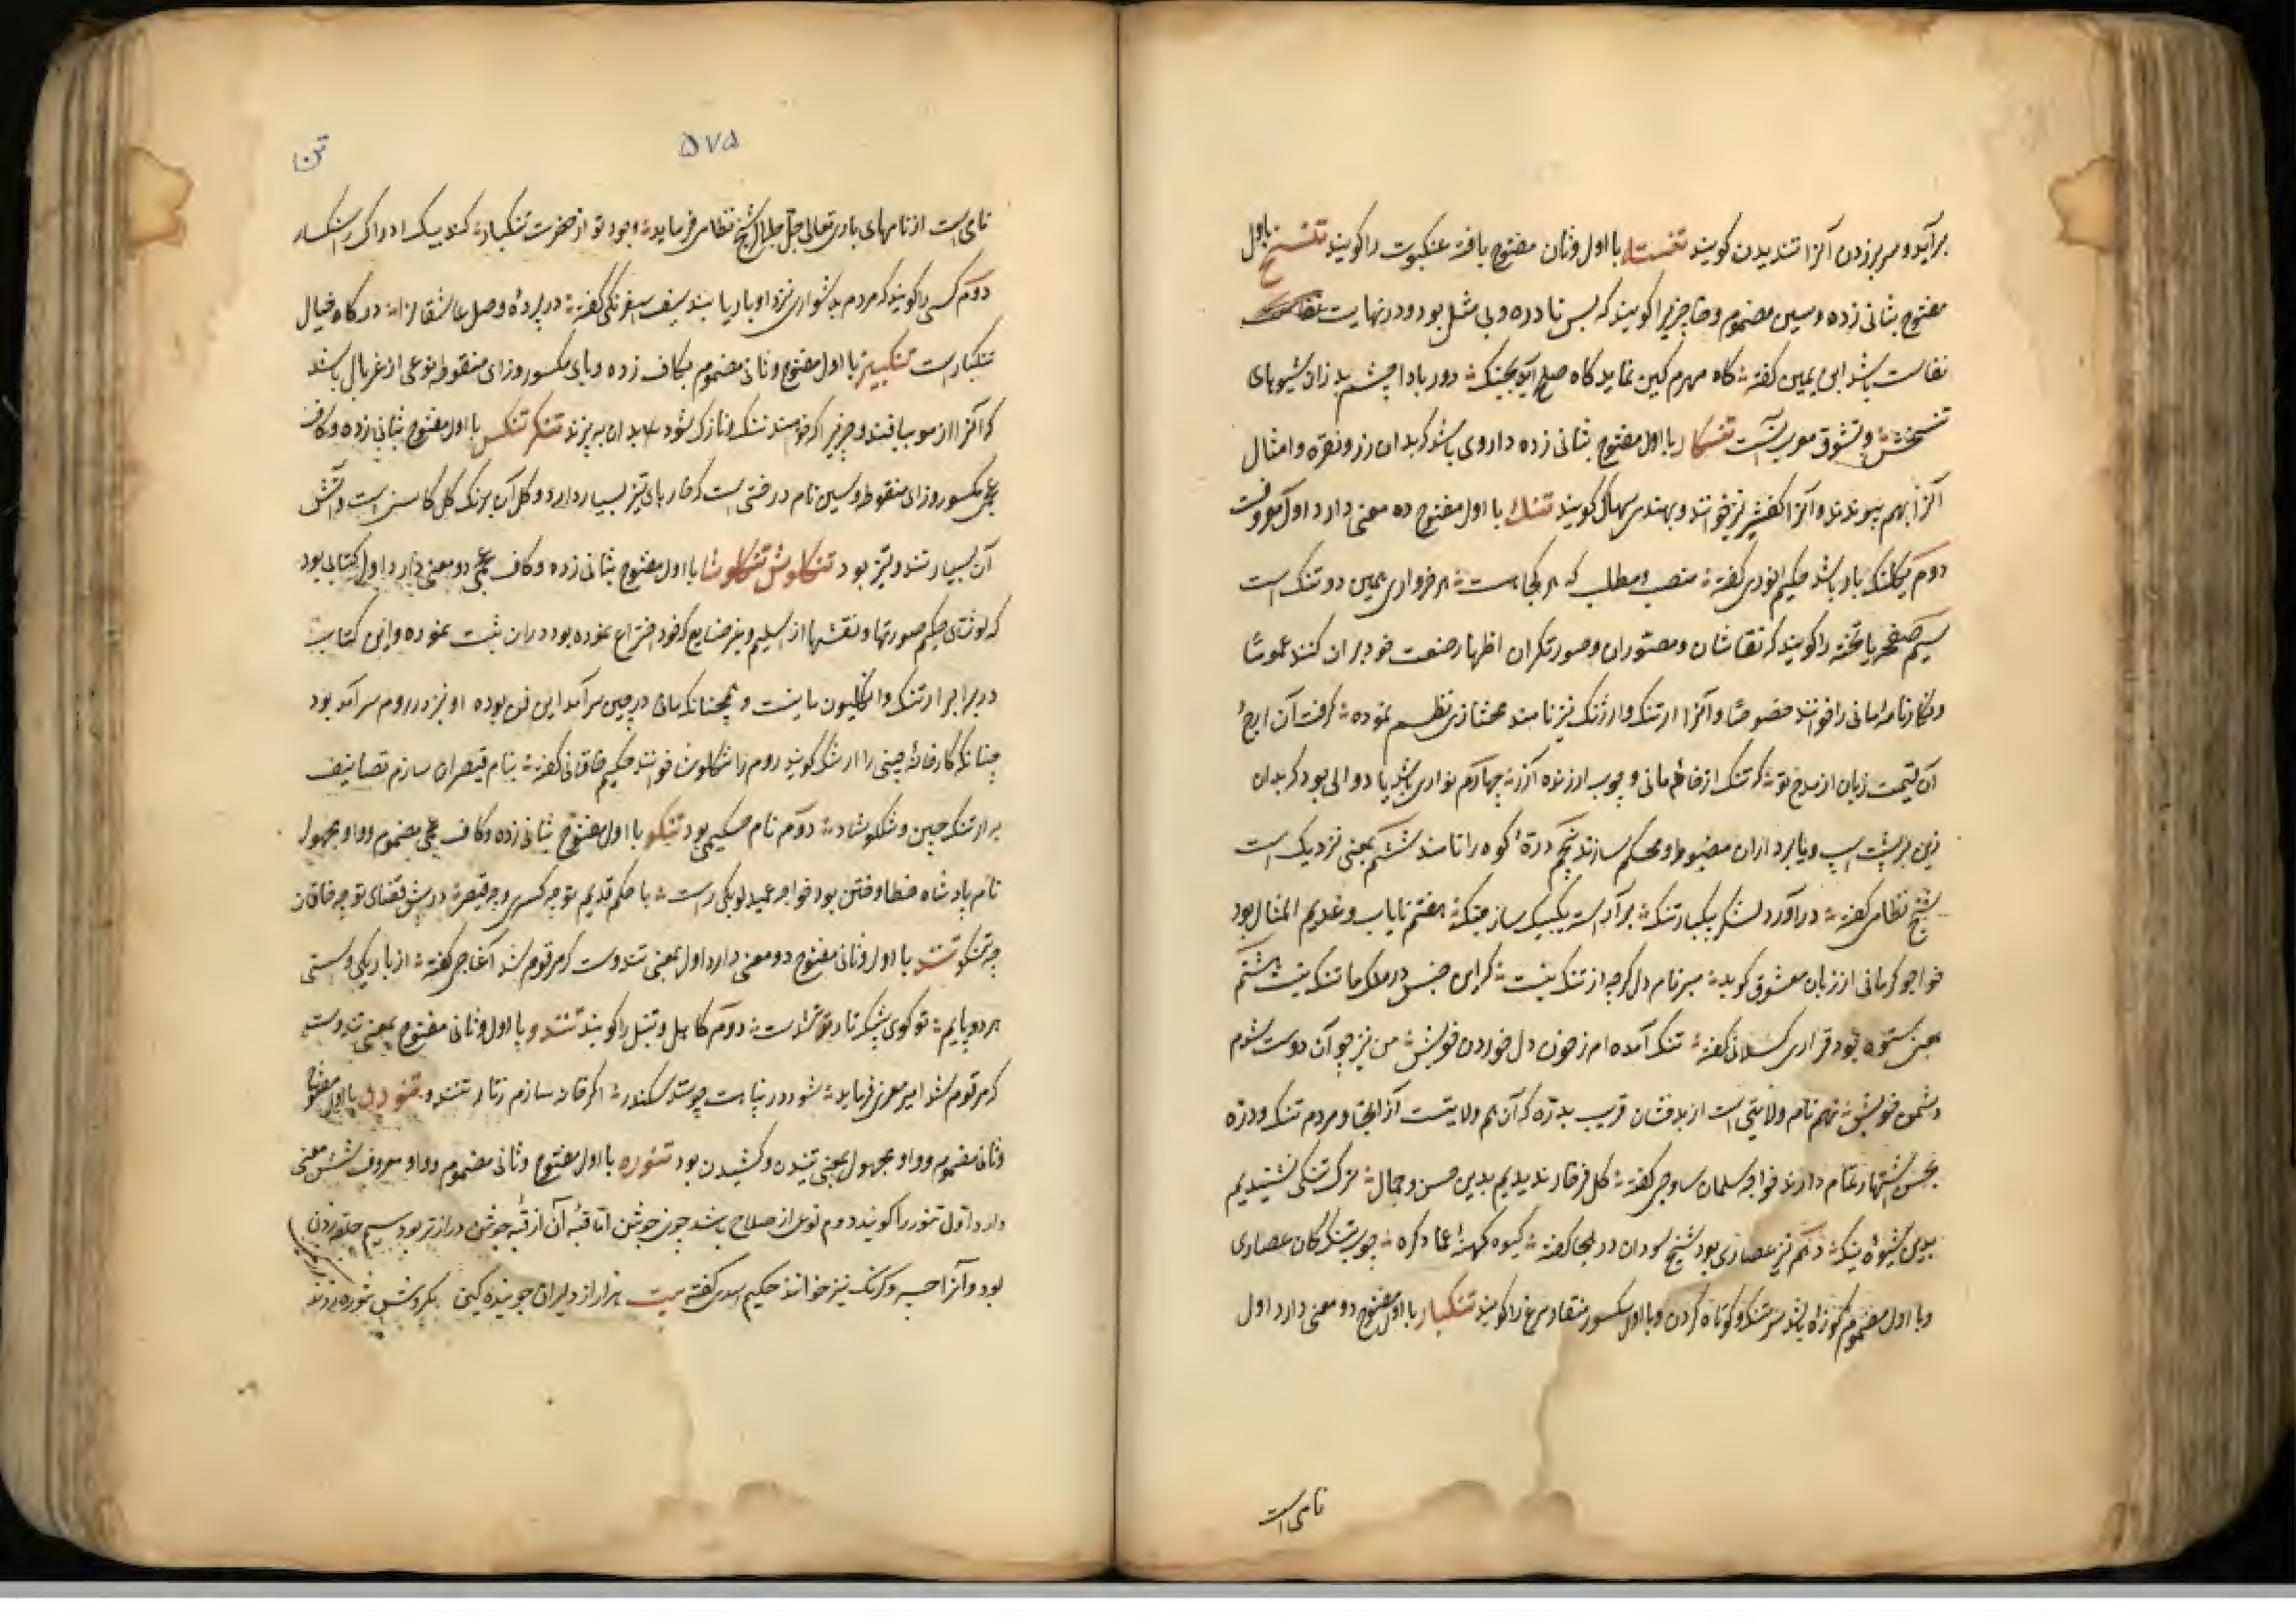 برآید و سر بر زدن آنرا تندیدن گویند تنستا با اول و ثانی مفتوح بافته عنکبوت را گویند تنسخ باول
مفتوح بثانی زده و سین مضموم و خا چیزیرا گویند که بس نادره و بی مثل بود و در نهایت
نفاست باشد ابن یمین گفته گاه مهرم کین نماید گاه صلح آید بجنگ دور بادا چشم بد زان شیوهای
تنسخش و تنسوق معرب آنست تنکار با اول مفتوح بثانی زده داروی باشد که بدان زر و نقره و امثال
آنرا بهم پیوندند و آنرا کفشیر نیز خوانند و بهندی سهاگه گویند تنگ با اول مفتوح ده معنی دارد اول معروفست
دوم یکلنگه بار باشد حکیم انوری گفته منصب و مطلب که هر کجا هست هر خرواری همین دو تنگ است
سیم صفحه یا تخته را گویند که نقاشان و مصوران و صورتگران اظهار صنعت خود بر آن کنند عموما
و نگارنامه مانی را خوانند خصوصا و آنرا ارتنگ و ارژنگ نیز نامند مختاری نظم نموده گرفت آن ارج
آن قیمت زبان از مدح تو که تنگ از خامه مانی و چوب از زنده آزر چهارم نواری باشد یا دوالی بود که بدان
زین بر پشت اسپ و یا بر داران مضبوط و محکم سازند پنجم دره کوه را نامند ششم بمعنی نزدیک است
شیخ نظامی گفته درآورد لشکر بیکبار تنگ برآراست یکیک ساز جنگ هفتم نایاب و عدیم المثال بود
خواجو کرمانی از زبان معشوق گوید مبر نام دل گرچه از تنگ نیست که این جنس در ملک ما تنگ نیست هشتم
بمعنی ستوه بود قراری گیلانی گفته تنگ آمده ام ز خون دل خوردن خویش من نیز چو آن دوست شدم
دشمن خویش نهم نام ولایتی است از بدخشان قریب بدره که آن هم ولایتست از آنجا و مردم تنگ و دره
بحسن اشتهار تمام دارند خواجه سلمان ساوجی گفته گل فرخار ندیدیم بدین حسن و جمال ترک تنگی نشنیدیم
بدین شیوه ینگ دهم تیر عصاری بود شیخ سودان در هجا گفته گیوه کهنه عمادکره چوب تنگ دکان عصاری
و با اول مضموم کوزه باشد سر تنگ و کوتاه گردن و با اول مکسور منقار مرغ را گویند تنگبار با اول مفتوح دو معنی دارد اول
نامی است
۵۷۵
تن
نامی است از نامهای باری تعالی جل جلاله شیخ نظامی فرماید وجود تو از حضرت تنگبار کند پیک ادراک را سنگسار
دوم کسی را گویند که مردم بدشواری نزد او بار یابند سیف اسفرنگی گفته در پرده وصل عاشقانرا درگاه خیال
تنگبار است تنگبیز با اول مفتوح و ثانی مضموم بکاف زده و بای مکسور و زای منقوطه نوعی از غربال باشد
که آنرا از مو ببافند و چیزیرا که خواهند تنک و نازک شود بدان بپزند تنگز تنگس با اول مفتوح بثانی زده و کاف
عجمی مکسور و زای منقوطه و سین نام درختی است که خارهای تیز بسیار دارد و گل آن برنگ گل کاسنی است و آتش
آن بسیار تند و تیز بود تنگلوش تنگلوشا با اول مفتوح بثانی زده و کاف عجمی دو معنی دارد اول کتابی بود
که لوشای حکیم صورتها و نقشها از اسلیمی و نیز صنایع که خود اختراع نموده بود در آن ثبت نموده و این کتاب
در برابر ارتنگ و انگلیون مانیست و همچنانکه مانی در چین سرآمد این فن بوده او نیز در روم سرآمد بود
چنانکه کارخانه چینی را ارتنگ گویند روم را تنگلوش خوانند حکیم خاقانی گفته بنام قیصران سازم تصانیف
به از ارتنگ چین و تنگلوشا دوم نام حکیمی بود تنگو با اول مفتوح بثانی زده و کاف عجمی مضموم و واو مجهول
نام پادشاه خطا و ختن بود خواجه عمید لوبکی راست با حکم قدیم تو چه کسری و چه قیصر در پیش قضای تو چه خاقان
چه تنگو تنند با اول و ثانی مفتوح دو معنی دارد اول بمعنی تندوست که مرقوم شد آغاجی گفته از باریکی و سستی
هر دو پایم تو گوی پیشکر تار تنندست دوم کاهل و تنبل را گویند تنندو با اول و ثانی مفتوح بمعنی تندوست
که مرقوم شد امیر معزی فرماید شود در پناهت چو سد سکندر اگر خانه سازم ز تار تنندو تنودن با اول مفتوح
و ثانی مضموم و واو مجهول بمعنی تنیدن و کشیدن بود تنوره با اول مفتوح و ثانی مضموم و واو معروف شش معنی
دارد اول تنور را گویند دوم نوعی از سلاح باشد چون جوشن اما قبه آن از قبه جوشن درازتر بود سیم حلقه زدن
بود و آنرا چنبر و کرنک نیز خوانند حکیم اسدی گفته بیت هزار از دلیران جوینده کین بگردش تنوره زدند